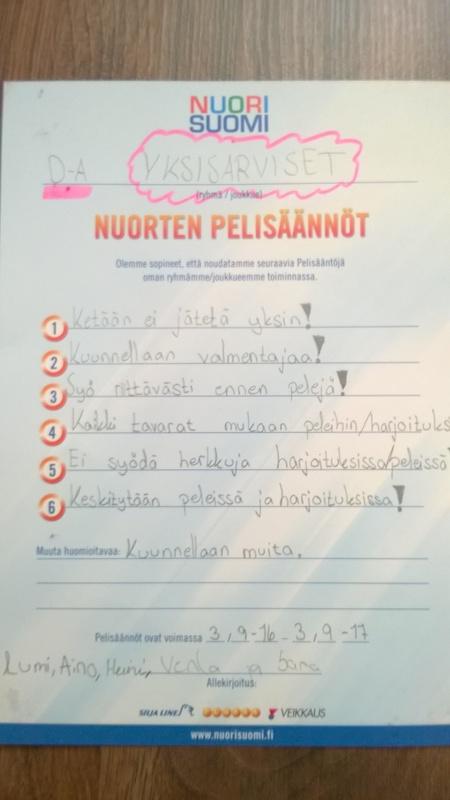 NUORI
SUOMI
D-A YKSISARVISET
(ryhmä / joukkue)
NUORTEN PELISÄÄNNÖT
Olemme sopineet, että noudatamme seuraavia Pelisääntöjä
oman ryhmämme/joukkueemme toiminnassa.
1 Ketään ei jätetä yksin!
2 Kuunnellaan valmentajaa!
3 Syö riittävästi ennen pelejä!
4 Kaikki tavarat mukaan peleihin/harjoituks
5 Ei syödä herkkuja harjoituksissa/peleissä!
6 Keskitytään peleissä ja harjoituksissa!
Muuta huomioitavaa: Kuunnellaan muita.
Pelisäännöt ovat voimassa 3.9-16 - 3.9-17
Lumi, Aino, Heini, Venla ja
Allekirjoitus:
SILJA LINE VEIKKAUS
www.nuorisuomi.fi